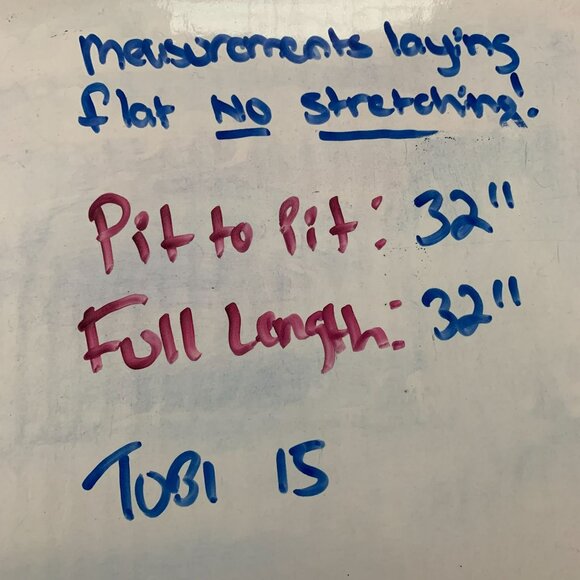 measurements laying
flat NO stretching!
Pit to Pit: 32"
Full Length: 32"
TOBI 15